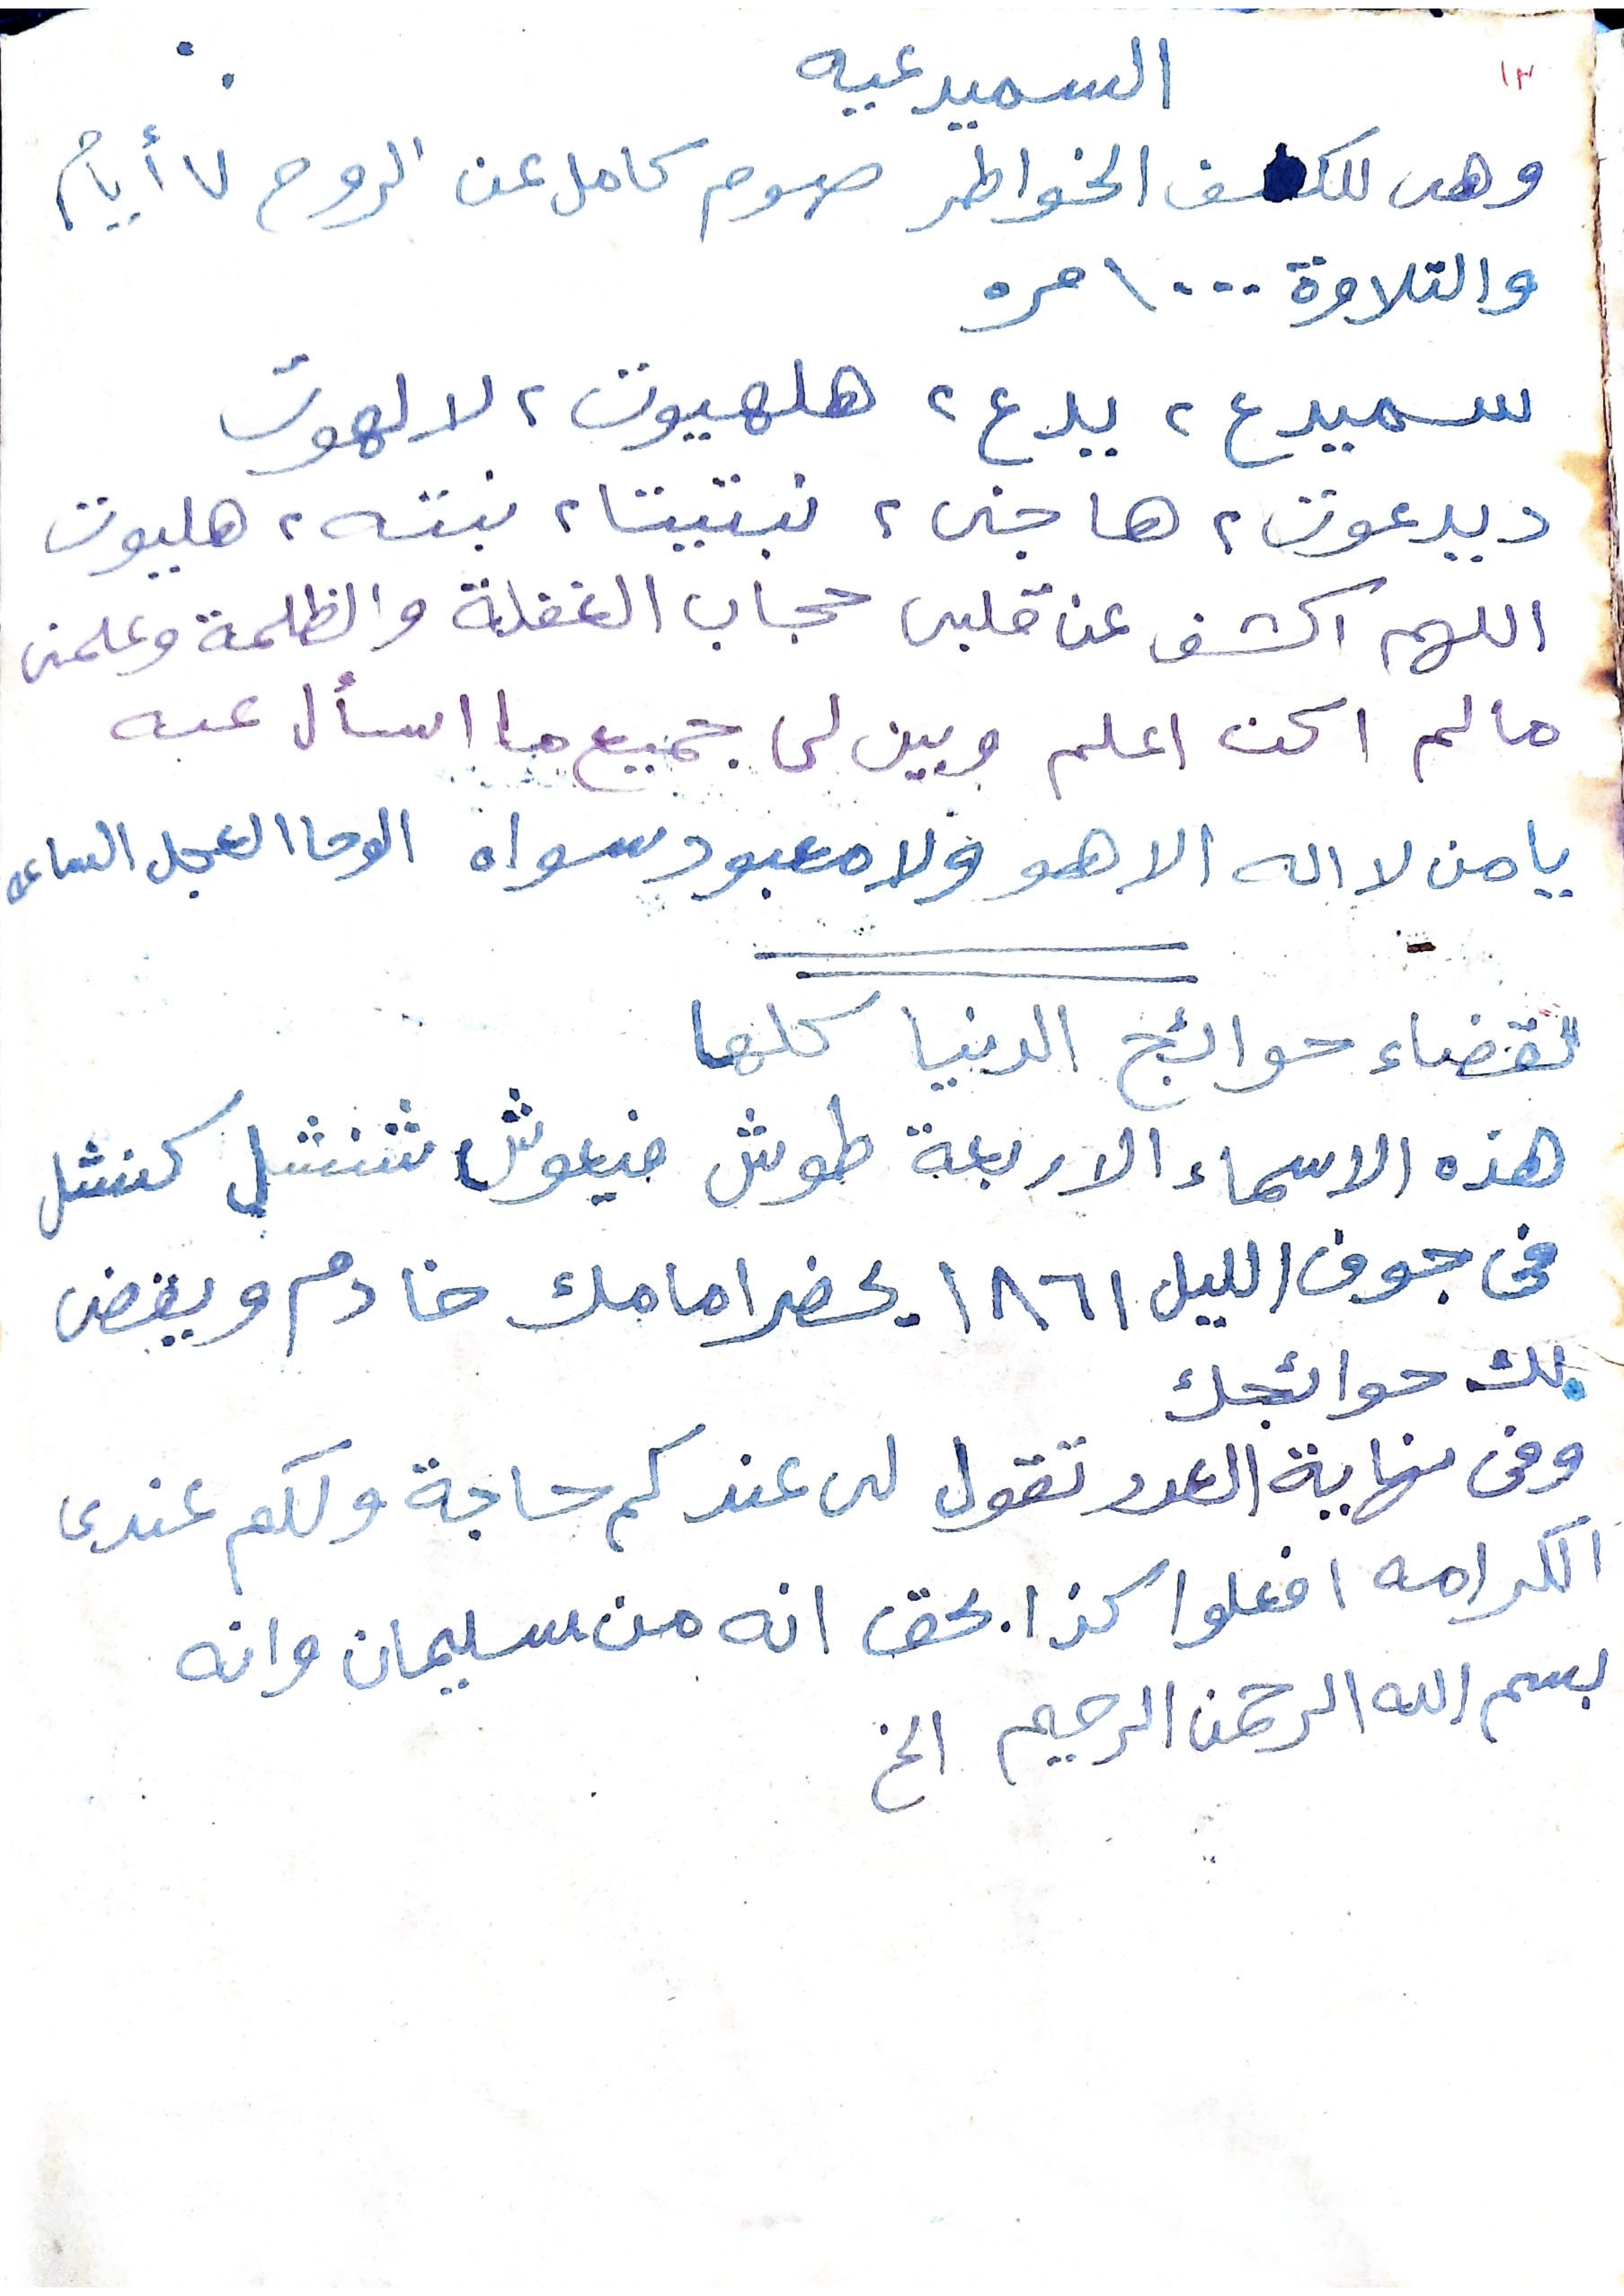 ١٣
السميدعيه
وهى للكشف الخواطر صوم كامل عن الروح ٧ أيام
والتلاوة ١٠٠٠ مره
سميدع ٢ يدع ٢ هلهيوت ٢ لا لهوت
ديدعوت ٢ هاجنى ٢ نبتيتا ٢ نبته ٢ هليوت
اللهم اكشف عن قلبى حجاب الغفلة والظلمة وعلمنى
مالم اكن اعلم وبين لى جميع ما اسأل عنه
يا من لا اله الا هو ولا معبود سواه الوحا العجل الساعه
لقضاء حوائج الدنيا كلها
هذه الاسماء الاربعة طوش فيعوش شنشل كنشل
فى جوف الليل ١٨٦١ يحضر امامك خادم ويقضى
لك حوائجك
وفى نهاية العدد تقول لى عندكم حاجة ولكم عندى
الكرامه افعلوا كذا بحق انه من سليمان وانه
بسم الله الرحمن الرحيم الخ